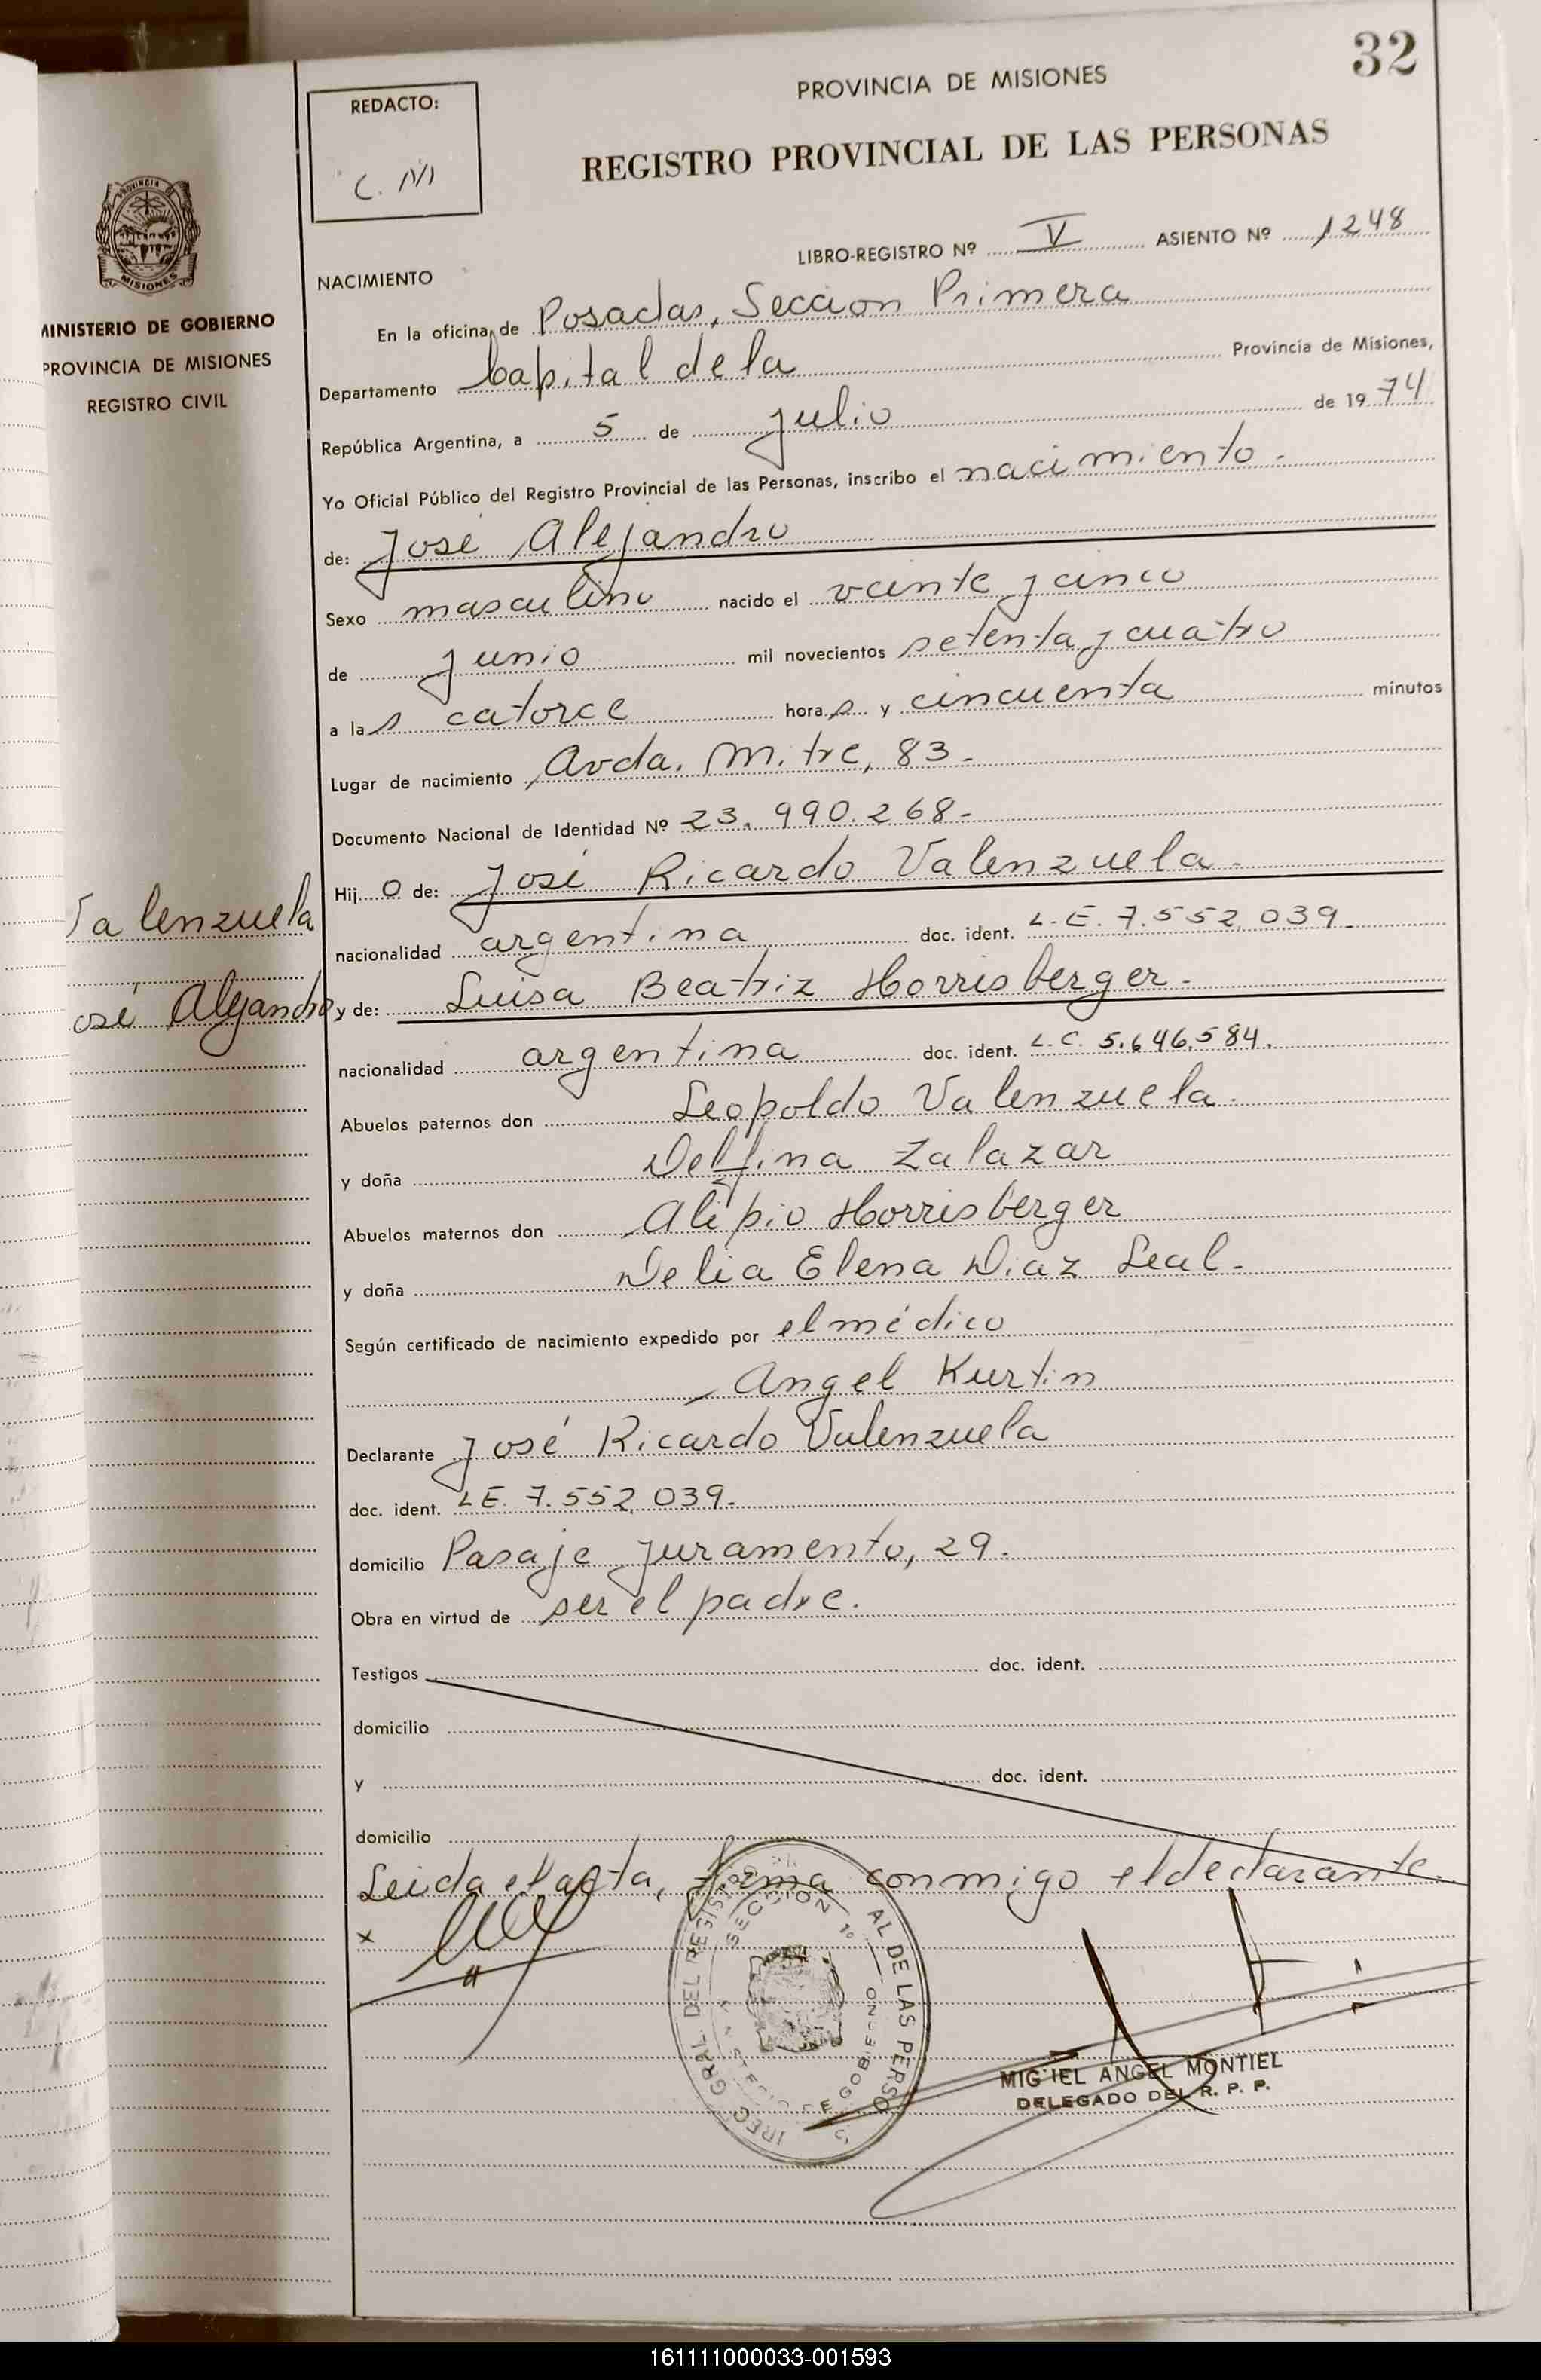 32
PROVINCIA DE MISIONES
REGISTRO PROVINCIAL DE LAS PERSONAS
REDACTO:
MISIONES
MINISTERIO DE GOBIERNO
PROVINCIA DE MISIONES
REGISTRO CIVIL
LIBRO-REGISTRO Nº V ASIENTO Nº 1248
NACIMIENTO
En la oficina de Posadas, Seccion Primera
Departamento Capital de la Provincia de Misiones,
República Argentina, a 5 de julio de 1974
Yo Oficial Público del Registro Provincial de las Personas, inscribo el nacimiento -
de: José Alejandro
Sexo masculino nacido el veinte y cinco
de junio mil novecientos setenta y cuatro
a las catorce horas y cincuenta minutos
Lugar de nacimiento Avda. Mitre, 83 -
Documento Nacional de Identidad Nº 23.990.268-
Hijo de: José Ricardo Valenzuela -
Valenzuela
nacionalidad argentina doc. ident. L.E. 7.552.039-
José Alejandro
y de: Luisa Beatriz Horrisberger -
nacionalidad argentina doc. ident. L.C. 5.646.584.
Abuelos paternos don Leopoldo Valenzuela -
y doña Delfina Zalazar
Abuelos maternos don Alipio Horrisberger
y doña Delia Elena Diaz Leal -
Según certificado de nacimiento expedido por el médico
Angel Kurtin
Declarante José Ricardo Valenzuela
doc. ident. LE. 7.552.039-
domicilio Pasaje Juramento, 29 -
Obra en virtud de ser el padre.
Testigos doc. ident.
domicilio
y doc. ident.
domicilio
Leida el acta, firma conmigo el declarante.
x
MIGUEL ANGEL MONTIEL
DELEGADO DEL R. P. P.
161111000033-001593